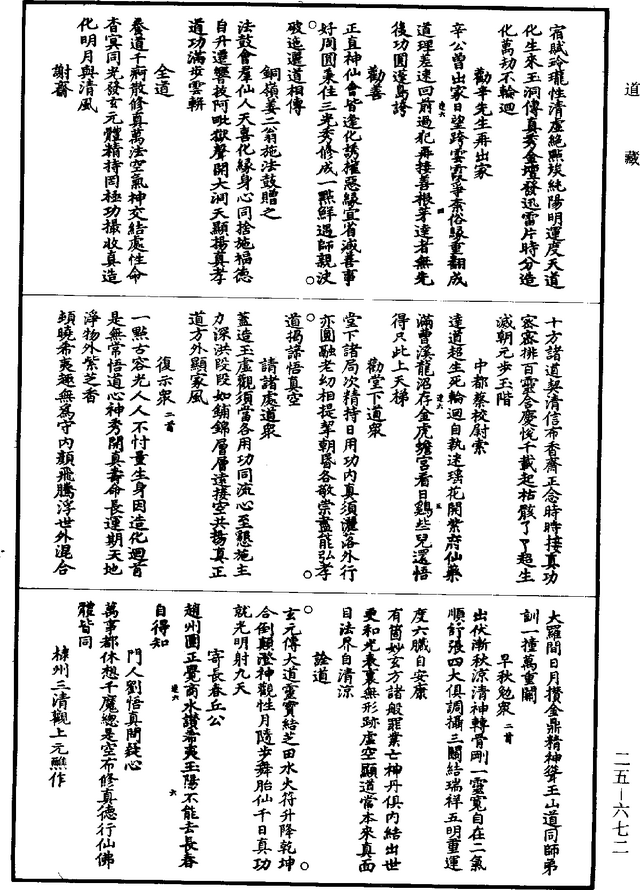 道藏
宿賦玲瓏性清虛絕點埃純陽明運度天道
化生來玉洞傳真秀金壇發迅雷片時分造
化萬劫不輪迴
勸辛先生再出家
辛公曾出家日望跨雲霞爭柰俗緣重翻成
道理差速回前過犯再接善根芽達者無先
後功圓蓬島誇
勸善
正直神仙會皆逢化誘權惡緣宜省減善事
好周圓秉住三光秀修成一點鮮遇師親決
破迤邐道相傳
銅嶺姜二翁施法鼓贈之
法鼓會羣仙人天喜化緣身心同捨施福德
自升遷響振阿毗獄聲開大洞天顯揚真孝
道功滿步雲軿
全道
養道千祠散修真萬法空氣神交結處性命
杳冥同光發玄元體精持罔極功撮收真造
化明月與清風
謝齋
十方諸道契清信布香齋正念時時接真功
密密排百靈合慶悅千載起枯骸了了超生
滅朝元步玉階
中都蔡校尉索
達道超生死輪迴自執迷瑤花開紫府仙藥
滿曹溪龍沼存金虎蟾宮看日雞些兒還悟
得只此上天梯
勸堂下道眾
堂下諸局次精持日用功內真須灑落外行
亦圓融老幼相提挈朝昏各敬崇盡能弘孝
道揭諦悟真空
請諸處道眾
蓋造玉虛觀須當各用功同流心至懇施主
力深洪段段如鋪錦層層遠接空共揚真正
道方外顯家風
復示眾二首
一點古容光人人不忖量生身因造化迴首
是無常悟道心神秀開真壽命長運期天地
淨物外紫芝香
頓曉希夷趣無為守內顏飛騰浮世外混合
大羅間日月攢金鼎精神聳玉山道同師弟
訓一撞萬重關
早秋勉眾二首
出伏漸秋涼清神轉骨剛一靈寬自在二氣
順舒張四大俱調攝三關結瑞祥五明重運
度六臟自安康
有箇妙玄方諸般罪業亡神丹俱內結出世
更和光表裏無形跡虛空顯道當本來真面
目法界自清涼
詮道
玄元傳大道靈寶結芝田水火符升降乾坤
合倒顛澄神觀性月隨步舞胎仙千日真功
就光明射九天
寄長春丘公
趙州圓正覺商水讚希夷玉陽不能去長春
自得知
門人劉悟真問疑心
萬事都休想千魔總是空布修真德行仙佛
體皆同
棣州三清觀上元醮作
二五—六七二